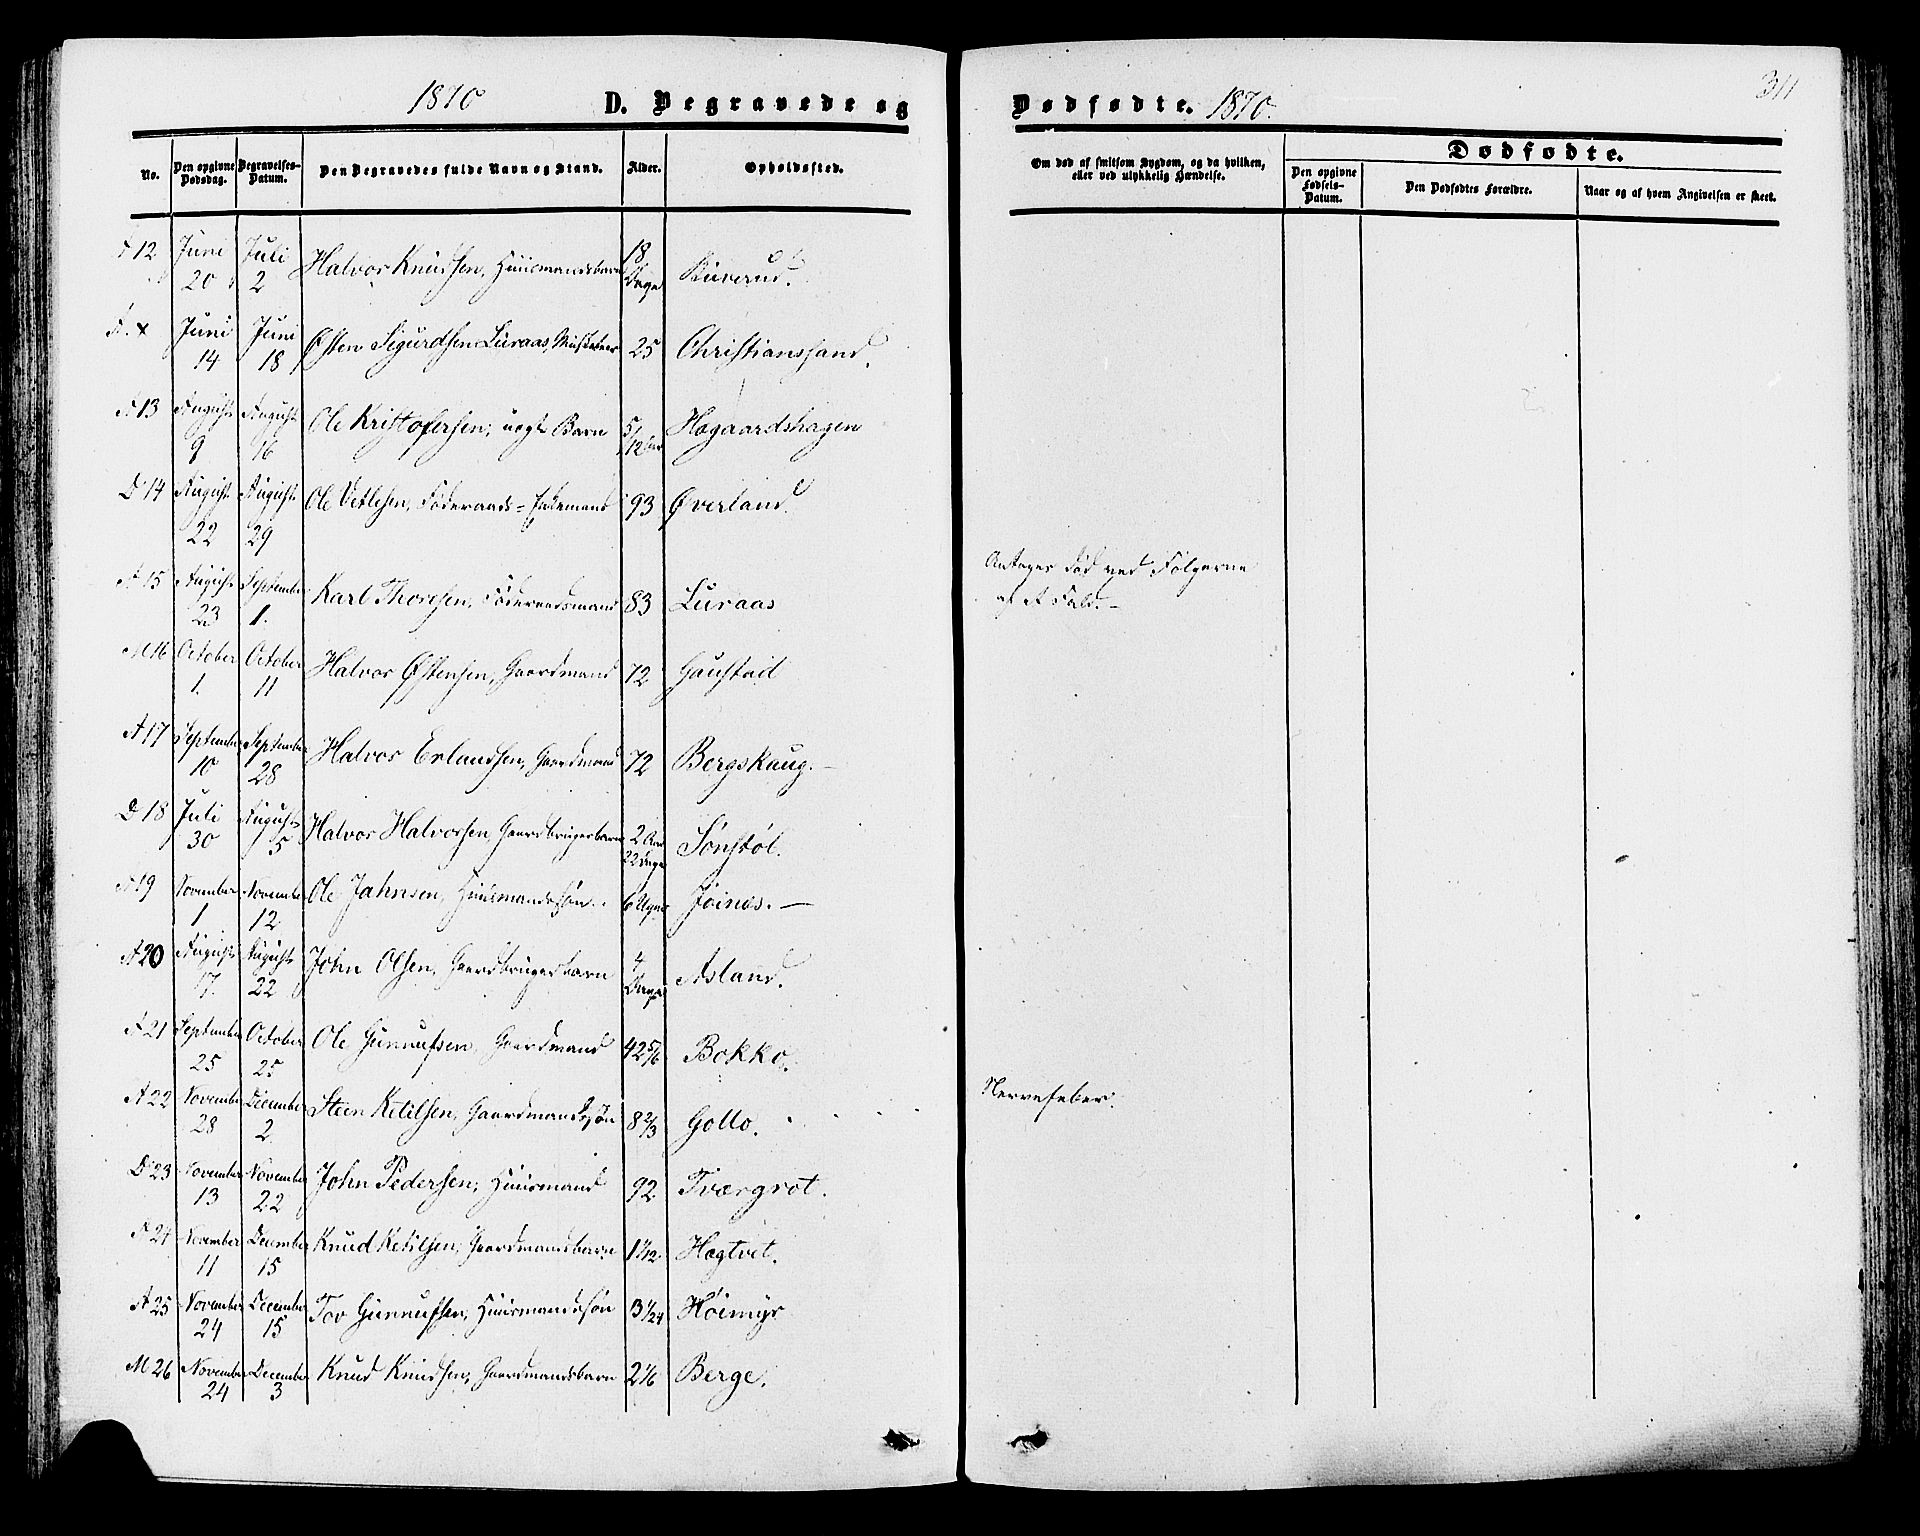 1870 D. Begravede og Dødfødte. 1870. 311
No. Den opgivne Dødsdag. Begravelses-Datum. Den Begravedes fulde Navn og Stand. Alder. Opholdssted. Om død af smitsom Sygdom, og da hvilken, eller ved ulykkelig Hændelse.
Dødfødte.
Den opgivne Fødsels-Datum. Den Dødfødtes Forældre. Naar og af hvem Angivelsen er skeet.
12 Juni 20 Juli 2 Halvor Knudsen, Huusmandsbarn 18 Dage
Juni 14 Juni 18 Østen Sigurdsen Luraas, Musketeer 25 Christianssand.
13 August 9 August 16 Ole Kristofersen, uægt Barn 5/12 Aar Hogaardshagen
D 14 August 22 August 29 Ole Vetlesen, Føderaads-Enkemand 93 Øverland.
A 15 August 23 September 1. Karl Thoresen, Føderaadsmand 83 Luraas Antages død ved Følgerne
af et Fald. -
M 16 October 1. October 11 Halvor Østensen, Gaardmand 72 Gaustad
A 17 September 10 September 28 Halvor Erlandsen, Gaardmand 72 Bergskaug. -
D 18 Juli 30 August 5 Halvor Halvorsen, Gaardbrugerbarn 2 Aar 22 Dage Sønstøl.
19 November 1. November 12 Ole Jahnsen, Huusmandssøn. 6 Uger Jøinæs. -
A 20 August 17. August 22 John Olsen, Gaardbrugerbarn 4 Dage Asland.
21 September 25 October 25 Ole Gunnufsen, Gaardmand 42 5/6 Bokko.
A 22 November 28 December 2 Steen Ketilsen, Gaardmandssøn 8 2/3 Gollo. Nervefeber.
D 23 November 13 November 22 John Pedersen, Huusmand 92 Tværgrot.
24 November 11 December 15 Knud Ketilsen, Gaardmandsbarn 1 1/12 Hogtvet.
A 25 November 24 December 15 Tov Gunnufsen, Huusmandssøn 3 1/24 Høimyr
M 26 November 24 December 3 Knud Knudsen, Gaardmandsbarn 2 1/6 Berge.